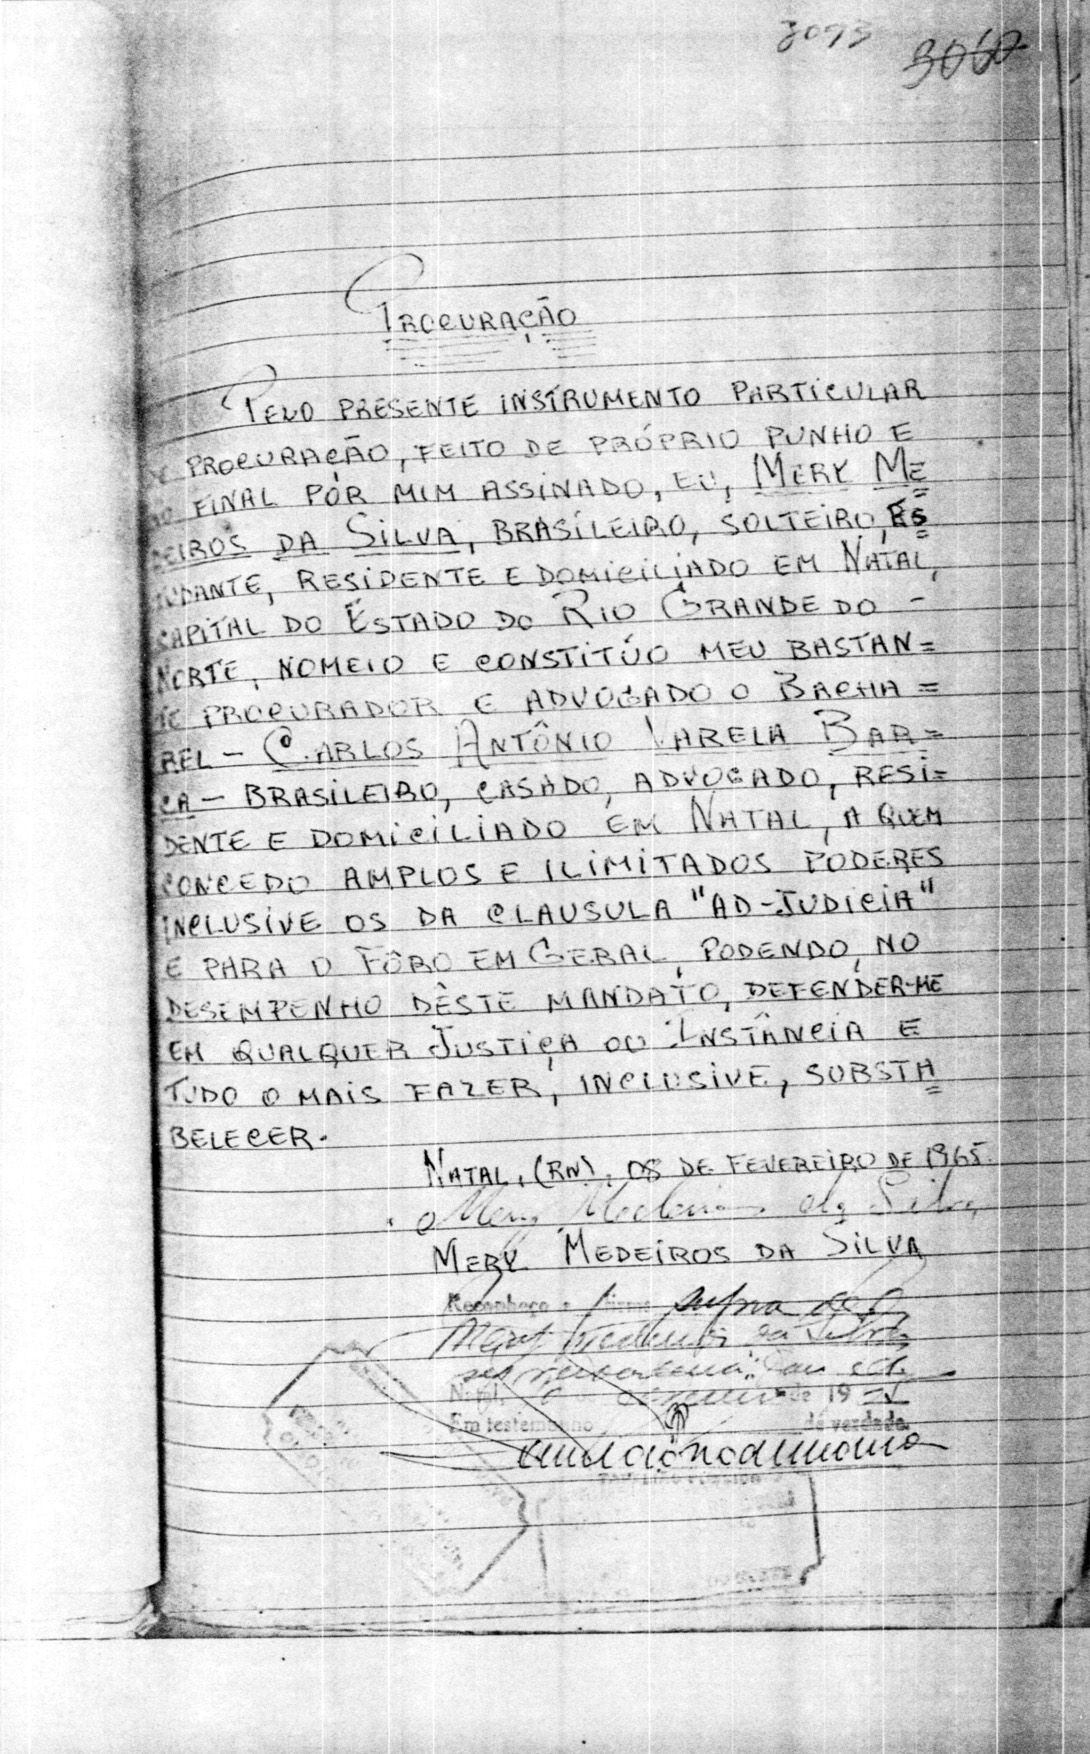 3073
3060
PROCURAÇÃO
PELO PRESENTE INSTRUMENTO PARTICULAR
DE PROCURAÇÃO, FEITO DE PRÓPRIO PUNHO E
AO FINAL POR MIM ASSINADO, EU, MERY ME
DEIROS DA SILVA, BRASILEIRO, SOLTEIRO, ES
TUDANTE, RESIDENTE E DOMICILIADO EM NATAL,
CAPITAL DO ESTADO DO RIO GRANDE DO -
NORTE, NOMEIO E CONSTITÚO MEU BASTAN=
TE PROCURADOR E ADVOGADO O BACHA=
REL - CARLOS ANTÔNIO VARELA BAR=
CA - BRASILEIRO, CASADO, ADVOGADO, RESI=
DENTE E DOMICILIADO EM NATAL, A QUEM
CONCEDO AMPLOS E ILIMITADOS PODERES
INCLUSIVE OS DA CLAUSULA "AD-JUDICIA"
E PARA O FÔRO EM GERAL, PODENDO, NO
DESEMPENHO DÊSTE MANDATO, DEFENDER-ME
EM QUALQUER JUSTIÇA OU INSTÂNCIA E
TUDO O MAIS FAZER, INCLUSIVE, SUBSTA=
BELECER.
NATAL, (RN), 08 DE FEVEREIRO DE 1965.
Mery Medeiros da Silva
MERY MEDEIROS DA SILVA
Reconheço a firma supra de
Mery Medeiros da Silva
Natal, de 19
Em testemunho da verdade.